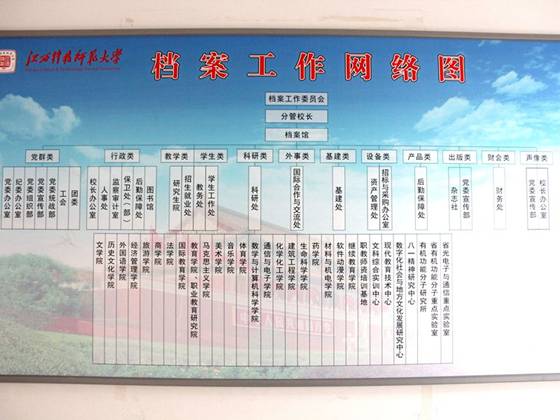 江西科技师范大学
档案工作网络图
档案工作委员会
分管校长
档案馆
党群类
行政类
教学类
学生类
科研类
外事类
基建类
设备类
产品类
出版类
财会类
声像类
党委办公室
纪委办公室
党委组织部
党委宣传部
党委统战部
工会
团委
校长办公室
人事处
监察审计处
保卫处(部)
后勤保障处
图书馆
研究生院
招生就业处
教务处
学生工作处
科研处
国际合作与交流处
基建处
资产管理处
招标与采购办公室
后勤保障处
杂志社
党委宣传部
财务处
党委宣传部
校长办公室
文学院
历史文化学院
外国语学院
经济管理学院
旅游学院
商学院
法学院
国际教育学院
教育学院
职业教育研究院
马克思主义学院
美术学院
音乐学院
体育学院
数学与计算机科学学院
通信与电子学院
化学化工学院
建筑工程学院
生命科学学院
药学院
材料与机电学院
软件动漫学院
继续教育学院
职教师资培训基地
文科综合实训中心
现代教育技术中心
数字化社会与地方文化发展研究中心
八一精神研究中心
有机功能分子研究所
省有机功能分子重点实验室
省光电子与通信重点实验室